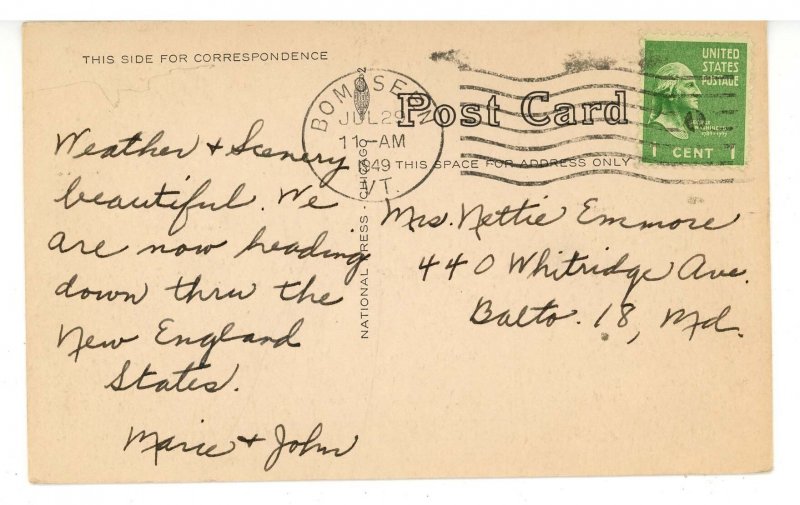 THIS SIDE FOR CORRESPONDENCE
Weather + Scenery
beautiful. We
are now heading
down thru the
New England
States.
Marie + John
NATIONAL PRESS - CHICAGO 2
BOMOSEEN
JUL 29
11-AM
1949
VT.
Post Card
THIS SPACE FOR ADDRESS ONLY
UNITED
STATES
POSTAGE
1 CENT 1
Mrs. Nettie Emmore
440 Whitridge Ave.
Balto. 18, Md.